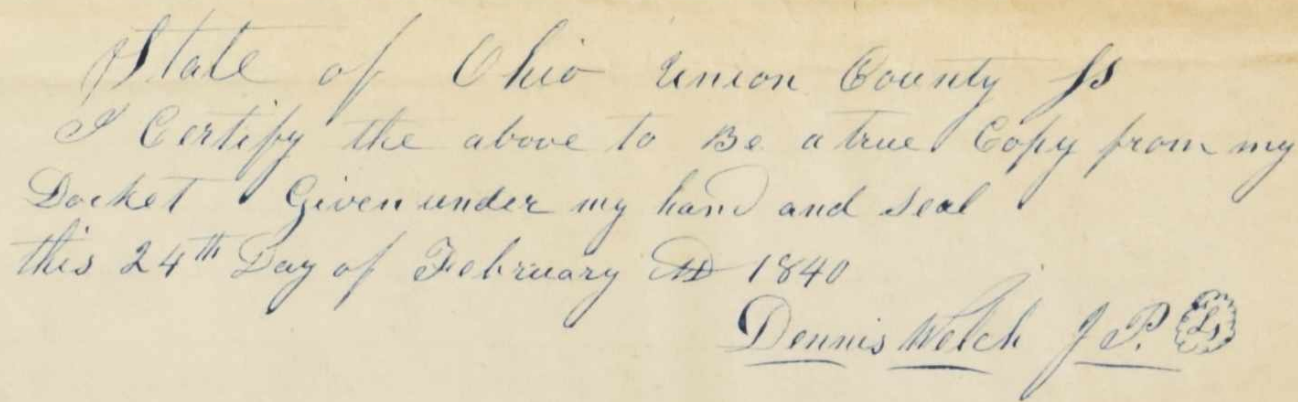 State of Ohio Union County ss
I Certify the above to Be a true Copy from my
Docket Given under my hand and seal
this 24th Day of February AD 1840
Dennis Welch J P. Ls